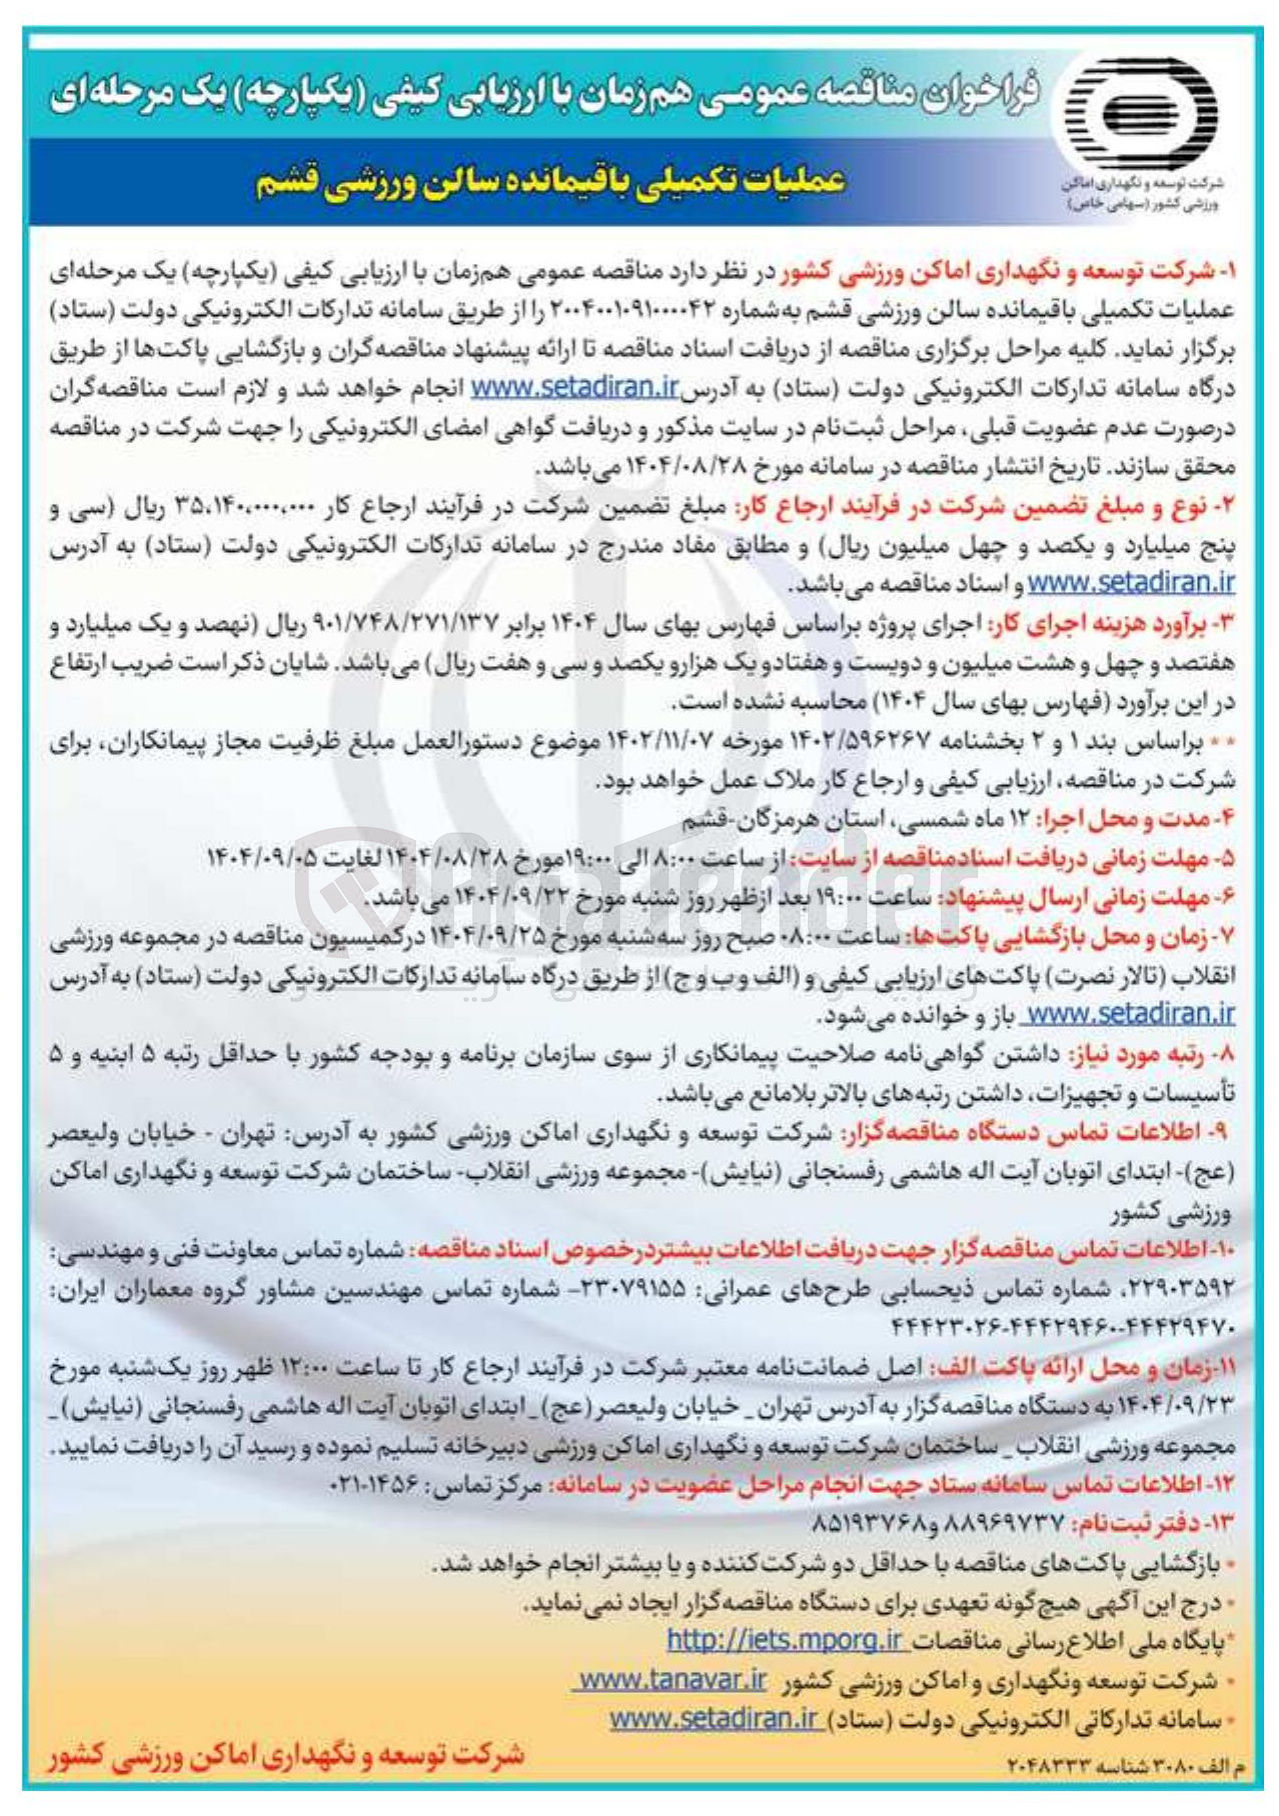 فراخوان مناقصه عمومی هم‌زمان با ارزیابی کیفی (یکپارچه) یک مرحله‌ای
عملیات تکمیلی باقیمانده سالن ورزشی قشم
شرکت توسعه و نگهداری اماکن
ورزشی کشور (سهامی خاص)
۱- شرکت توسعه و نگهداری اماکن ورزشی کشور در نظر دارد مناقصه عمومی هم‌زمان با ارزیابی کیفی (یکپارچه) یک مرحله‌ای
عملیات تکمیلی باقیمانده سالن ورزشی قشم به‌شماره ۲۰۰۴۰۰۱۰۹۱۰۰۰۰۴۲ را از طریق سامانه تدارکات الکترونیکی دولت (ستاد)
برگزار نماید. کلیه مراحل برگزاری مناقصه از دریافت اسناد مناقصه تا ارائه پیشنهاد مناقصه‌گران و بازگشایی پاکت‌ها از طریق
درگاه سامانه تدارکات الکترونیکی دولت (ستاد) به آدرس www.setadiran.ir انجام خواهد شد و لازم است مناقصه‌گران
درصورت عدم عضویت قبلی، مراحل ثبت‌نام در سایت مذکور و دریافت گواهی امضای الکترونیکی را جهت شرکت در مناقصه
محقق سازند. تاریخ انتشار مناقصه در سامانه مورخ ۱۴۰۴/۰۸/۲۸ می‌باشد.
۲- نوع و مبلغ تضمین شرکت در فرآیند ارجاع کار: مبلغ تضمین شرکت در فرآیند ارجاع کار ۳۵،۱۴۰،۰۰۰،۰۰۰ ریال (سی و
پنج میلیارد و یکصد و چهل میلیون ریال) و مطابق مفاد مندرج در سامانه تدارکات الکترونیکی دولت (ستاد) به آدرس
www.setadiran.ir و اسناد مناقصه می‌باشد.
۳- برآورد هزینه اجرای کار: اجرای پروژه براساس فهارس بهای سال ۱۴۰۴ برابر ۹۰۱/۷۴۸/۲۷۱/۱۳۷ ریال (نهصد و یک میلیارد و
هفتصد و چهل و هشت میلیون و دویست و هفتادو یک هزارو یکصد و سی و هفت ریال) می‌باشد. شایان ذکر است ضریب ارتفاع
در این برآورد (فهارس بهای سال ۱۴۰۴) محاسبه نشده است.
** براساس بند ۱ و ۲ بخشنامه ۱۴۰۲/۵۹۶۲۶۷ مورخه ۱۴۰۲/۱۱/۰۷ موضوع دستورالعمل مبلغ ظرفیت مجاز پیمانکاران، برای
شرکت در مناقصه، ارزیابی کیفی و ارجاع کار ملاک عمل خواهد بود.
۴- مدت و محل اجرا: ۱۲ ماه شمسی، استان هرمزگان-قشم
۵- مهلت زمانی دریافت اسنادمناقصه از سایت: از ساعت ۸:۰۰ الی ۱۹:۰۰مورخ ۱۴۰۴/۰۸/۲۸ لغایت ۱۴۰۴/۰۹/۰۵
۶- مهلت زمانی ارسال پیشنهاد: ساعت ۱۹:۰۰ بعد ازظهر روز شنبه مورخ ۱۴۰۴/۰۹/۲۲ می‌باشد.
۷- زمان و محل بازگشایی پاکت‌ها: ساعت ۰۸:۰۰ صبح روز سه‌شنبه مورخ ۱۴۰۴/۰۹/۲۵ درکمیسیون مناقصه در مجموعه ورزشی
انقلاب (تالار نصرت) پاکت‌های ارزیابی کیفی و (الف و ب و ج) از طریق درگاه سامانه تدارکات الکترونیکی دولت (ستاد) به آدرس
www.setadiran.ir باز و خوانده می‌شود.
۸- رتبه مورد نیاز: داشتن گواهی‌نامه صلاحیت پیمانکاری از سوی سازمان برنامه و بودجه کشور با حداقل رتبه ۵ ابنیه و ۵
تأسیسات و تجهیزات، داشتن رتبه‌های بالاتر بلامانع می‌باشد.
۹- اطلاعات تماس دستگاه مناقصه‌گزار: شرکت توسعه و نگهداری اماکن ورزشی کشور به آدرس: تهران - خیابان ولیعصر
(عج)- ابتدای اتوبان آیت اله هاشمی رفسنجانی (نیایش)- مجموعه ورزشی انقلاب- ساختمان شرکت توسعه و نگهداری اماکن
ورزشی کشور
۱۰- اطلاعات تماس مناقصه‌گزار جهت دریافت اطلاعات بیشتردرخصوص اسناد مناقصه: شماره تماس معاونت فنی و مهندسی:
۲۲۹۰۳۵۹۲، شماره تماس ذیحسابی طرح‌های عمرانی: ۲۳۰۷۹۱۵۵– شماره تماس مهندسین مشاور گروه معماران ایران:
۴۴۴۲۳۰۲۶-۴۴۴۲۹۴۶۰-۴۴۴۲۹۴۷۰
۱۱-زمان و محل ارائه پاکت الف: اصل ضمانت‌نامه معتبر شرکت در فرآیند ارجاع کار تا ساعت ۱۲:۰۰ ظهر روز یک‌شنبه مورخ
۱۴۰۴/۰۹/۲۳ به دستگاه مناقصه‌گزار به آدرس تهران_ خیابان ولیعصر (عج)_ ابتدای اتوبان آیت اله هاشمی رفسنجانی (نیایش)_
مجموعه ورزشی انقلاب_ ساختمان شرکت توسعه و نگهداری اماکن ورزشی دبیرخانه تسلیم نموده و رسید آن را دریافت نمایید.
۱۲- اطلاعات تماس سامانه ستاد جهت انجام مراحل عضویت در سامانه: مرکز تماس: ۱۴۵۶-۰۲۱
۱۳- دفتر ثبت‌نام: ۸۸۹۶۹۷۳۷ و۸۵۱۹۳۷۶۸
* بازگشایی پاکت‌های مناقصه با حداقل دو شرکت‌کننده و یا بیشتر انجام خواهد شد.
* درج این آگهی هیچ‌گونه تعهدی برای دستگاه مناقصه‌گزار ایجاد نمی‌نماید.
*پایگاه ملی اطلاع‌رسانی مناقصات http://iets.mporg.ir
* شرکت توسعه ونگهداری و اماکن ورزشی کشور www.tanavar.ir
* سامانه تدارکاتی الکترونیکی دولت (ستاد) www.setadiran.ir
شرکت توسعه و نگهداری اماکن ورزشی کشور
م الف ۳۰۸۰ شناسه ۲۰۴۸۳۳۳